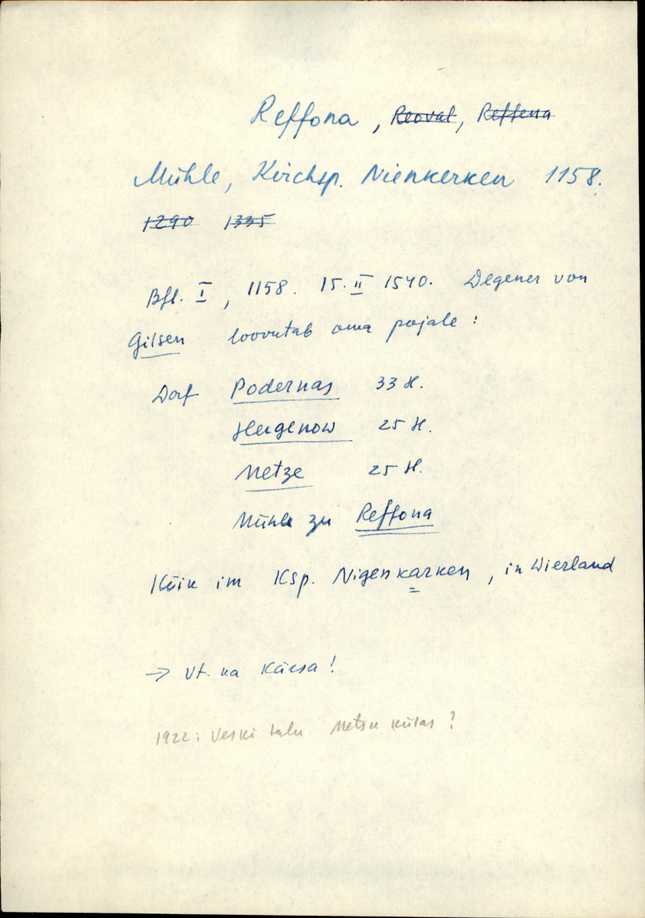 Reffona, Reoval, Reffena
Mühle, Kirchsp. Nienkerken 1158.
1290 1335
Bfl. I, 1158. 15.II 1540. Degener von
Gilsen loovutab oma pojale:
Dorf Podernas 33 H.
Hergenow 25 H.
Metze 25 H.
Mühle zu Reffona
Kõik im Ksp. Nigenkarken, in Wierland
→ Vt. ka Käesa!
1922: Veski talu Metsu külas?